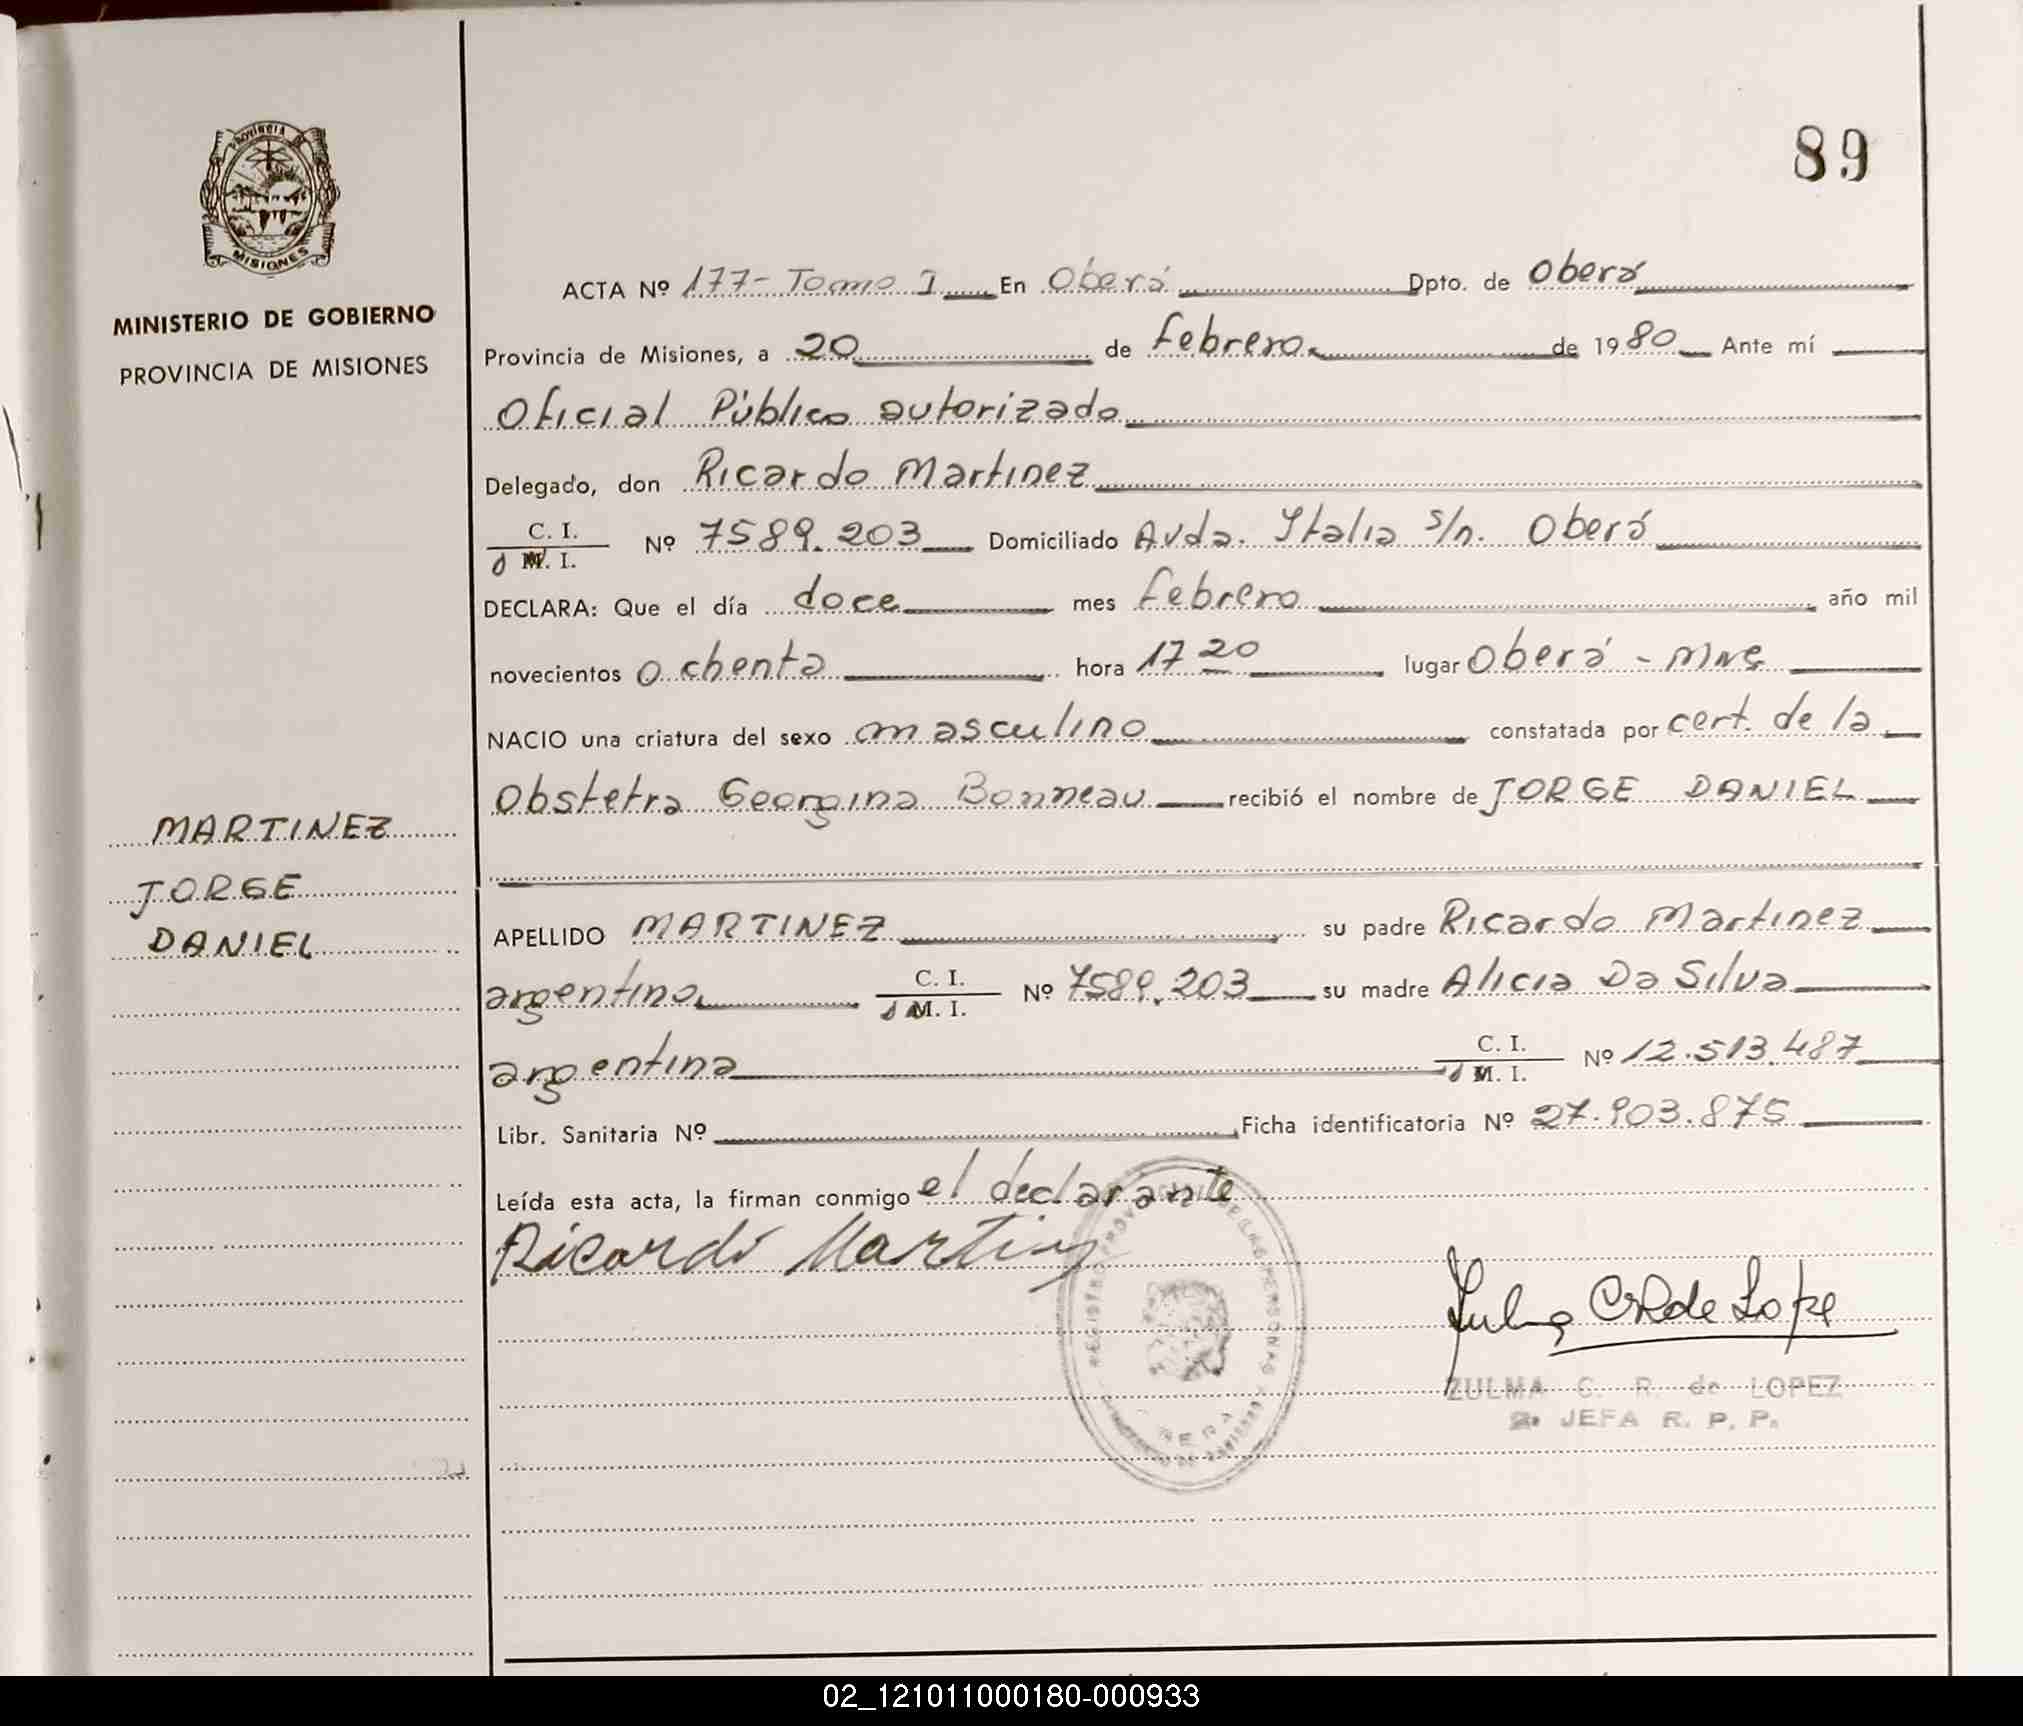 89
PROVINCIA DE
MISIONES
MINISTERIO DE GOBIERNO
PROVINCIA DE MISIONES
ACTA Nº 177- Tomo I En Oberá Dpto. de Oberá
Provincia de Misiones, a 20 de febrero de 1980 Ante mí
Oficial Público autorizado
Delegado, don Ricardo Martinez
C. I.
ó M. I. Nº 7589.203 Domiciliado Avda. Italia s/n. Oberá
DECLARA: Que el día doce mes febrero año mil
novecientos ochenta hora 17 20 lugar Oberá - Mnes
NACIO una criatura del sexo masculino constatada por cert. de la
Obstetra Georgina Bonneau recibió el nombre de JORGE DANIEL
MARTINEZ
JORGE
DANIEL
APELLIDO MARTINEZ su padre Ricardo Martinez
argentino C. I.
ó M. I. Nº 7589.203 su madre Alicia Da Silva
argentina C. I.
ó M. I. Nº 12.513.487
Libr. Sanitaria Nº Ficha identificatoria Nº 27.903.875
Leída esta acta, la firman conmigo el declarante
Ricardo Martinez
REGISTRO PROVINCIAL DE LAS PERSONAS
Zulma CR de Lopez
ZULMA C. R. de LOPEZ
JEFA R. P. P.
02_121011000180-000933